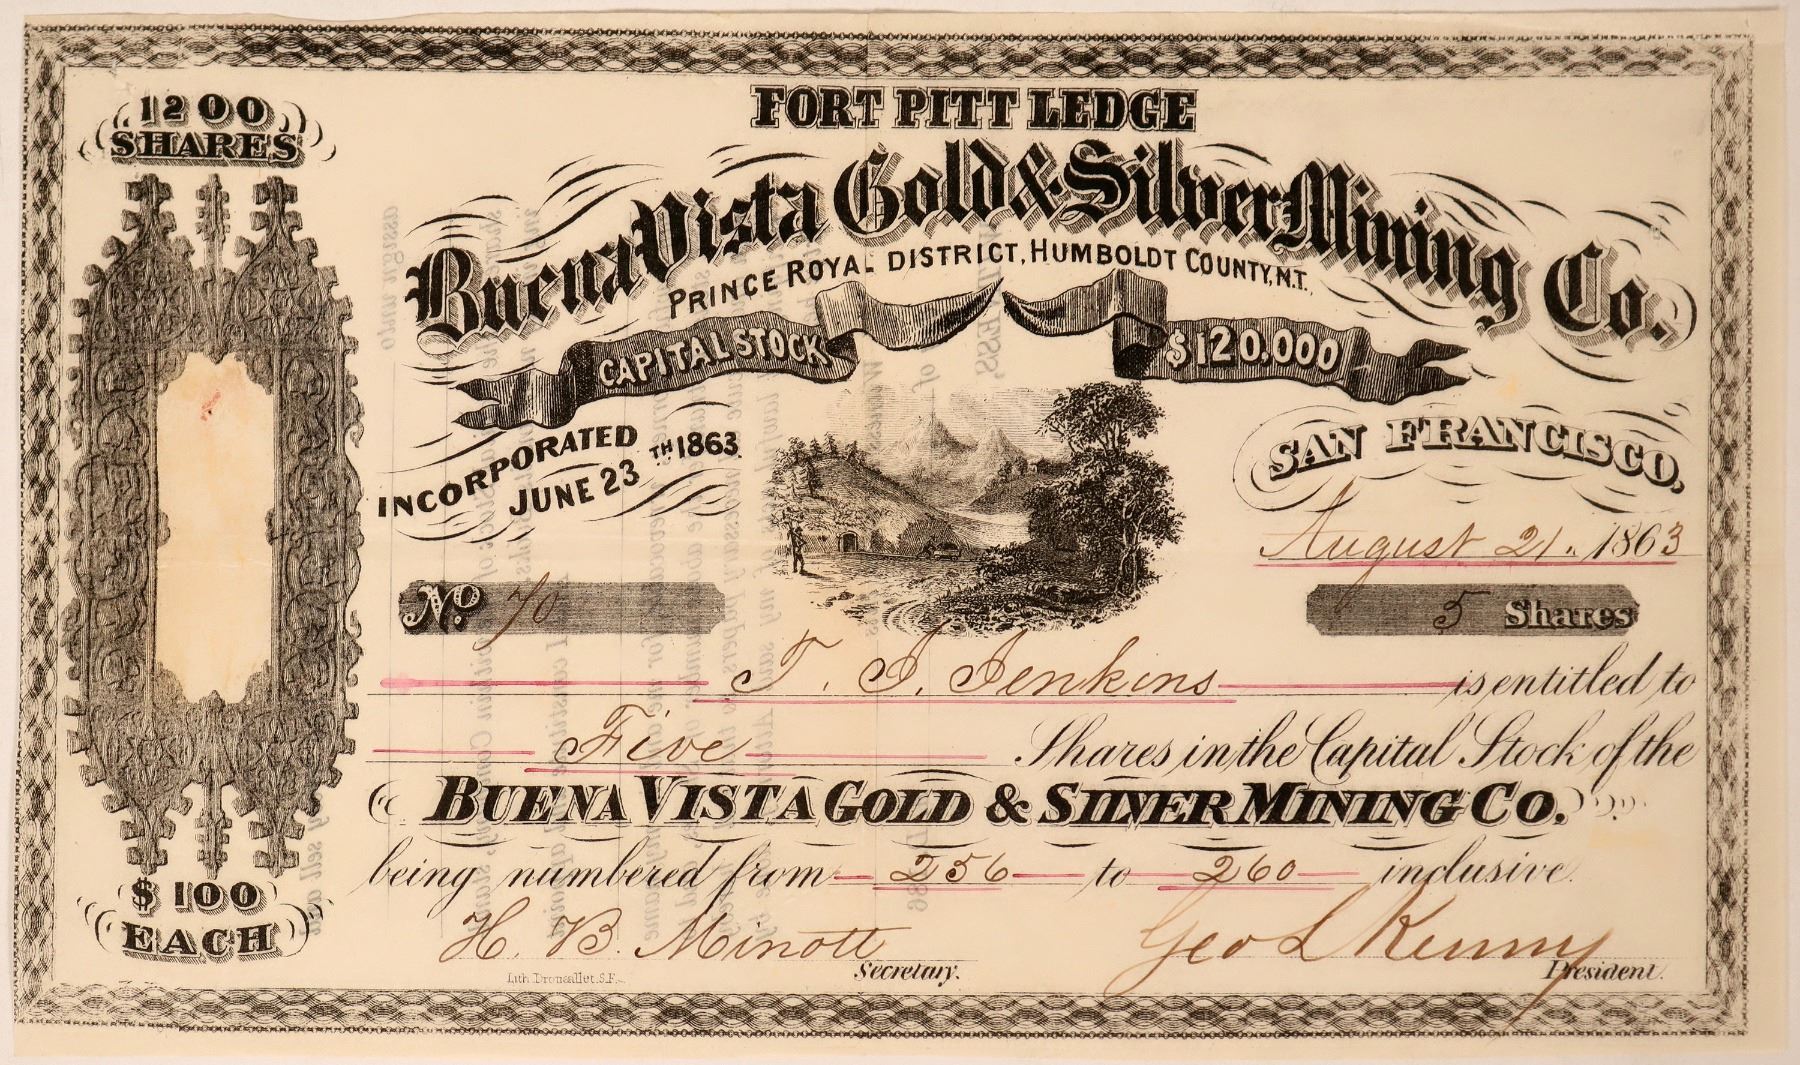 1200
SHARES
FORT PITT LEDGE
Buena Vista Gold & Silver Mining Co.
PRINCE ROYAL DISTRICT, HUMBOLDT COUNTY, N.T.
CAPITAL STOCK $120,000
INCORPORATED
JUNE 23TH 1863.
SAN FRANCISCO,
August 21. 1863
No. 70
5 Shares
T. J. Jenkins is entitled to
Five Shares in the Capital Stock of the
BUENA VISTA GOLD & SILVER MINING CO.
being numbered from 256 to 260 inclusive.
$100
EACH
H. B. Minott
Secretary.
Geo L Kenny
President.
Lith. Drouaillet. S.F.